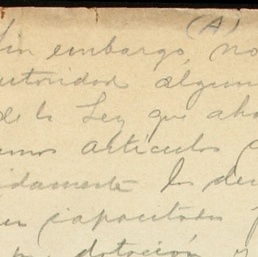 (A)
Sin embargo, no
autoridad algun
de la Ley que aho
emos articulos
idamente los de
capacitados
dotación y